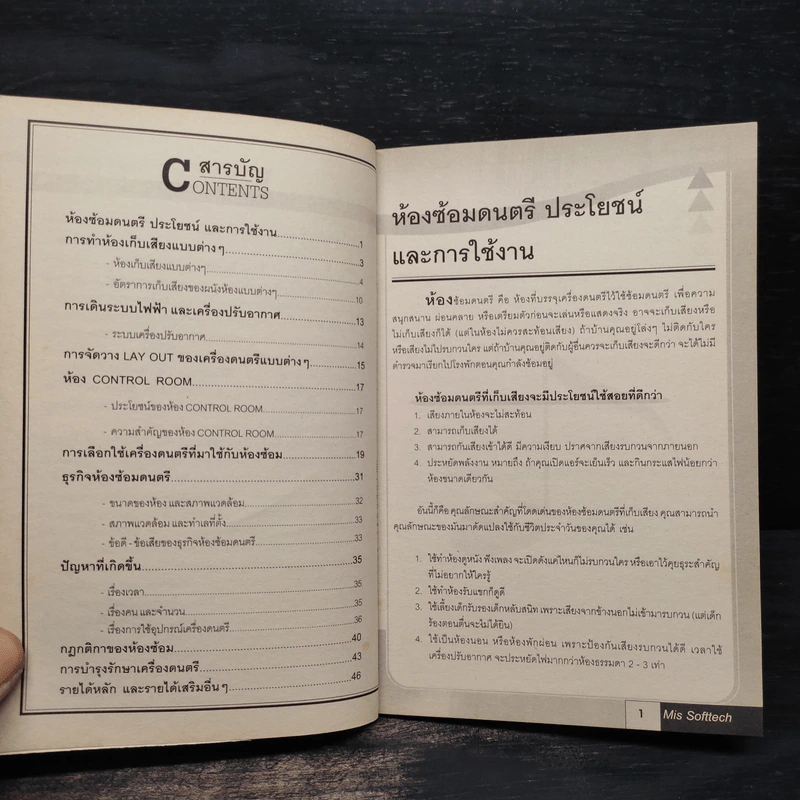 สารบัญ
CONTENTS
ห้องซ้อมดนตรี ประโยชน์ และการใช้งาน....1
การทำห้องเก็บเสียงแบบต่างๆ....3
- ห้องเก็บเสียงแบบต่างๆ....4
- อัตราการเก็บเสียงของผนังห้องแบบต่างๆ....10
การเดินระบบไฟฟ้า และเครื่องปรับอากาศ....13
- ระบบเครื่องปรับอากาศ....14
การจัดวาง LAY OUT ของเครื่องดนตรีแบบต่างๆ....15
ห้อง CONTROL ROOM....17
- ประโยชน์ของห้อง CONTROL ROOM....17
- ความสำคัญของห้อง CONTROL ROOM....17
การเลือกใช้เครื่องดนตรีที่มาใช้กับห้องซ้อม....19
ธุรกิจห้องซ้อมดนตรี....31
- ขนาดของห้อง และสภาพแวดล้อม....32
- สภาพแวดล้อม และทำเลที่ตั้ง....33
- ข้อดี - ข้อเสียของธุรกิจห้องซ้อมดนตรี....33
ปัญหาที่เกิดขึ้น....35
- เรื่องเวลา....35
- เรื่องคน และจำนวน....35
- เรื่องการใช้อุปกรณ์เครื่องดนตรี....36
กฎกติกาของห้องซ้อม....40
การบำรุงรักษาเครื่องดนตรี....43
รายได้หลัก และรายได้เสริมอื่นๆ....46
ห้องซ้อมดนตรี ประโยชน์
และการใช้งาน
ห้องซ้อมดนตรี คือ ห้องที่บรรจุเครื่องดนตรีไว้ใช้ซ้อมดนตรี เพื่อความ
สนุกสนาน ผ่อนคลาย หรือเตรียมตัวก่อนจะเล่นหรือแสดงจริง อาจจะเก็บเสียงหรือ
ไม่เก็บเสียงก็ได้ (แต่ในห้องไม่ควรสะท้อนเสียง) ถ้าบ้านคุณอยู่โล่งๆ ไม่ติดกับใคร
หรือเสียงไม่ไปรบกวนใคร แต่ถ้าบ้านคุณอยู่ติดกับผู้อื่นควรจะเก็บเสียงจะดีกว่า จะได้ไม่มี
ตำรวจมาเรียกไปโรงพักตอนคุณกำลังซ้อมอยู่
ห้องซ้อมดนตรีที่เก็บเสียงจะมีประโยชน์ใช้สอยที่ดีกว่า
1. เสียงภายในห้องจะไม่สะท้อน
2. สามารถเก็บเสียงได้
3. สามารถกันเสียงเข้าได้ดี มีความเงียบ ปราศจากเสียงรบกวนจากภายนอก
4. ประหยัดพลังงาน หมายถึง ถ้าคุณเปิดแอร์จะเย็นเร็ว และกินกระแสไฟน้อยกว่า
ห้องขนาดเดียวกัน
อันนี้ก็คือ คุณลักษณะสำคัญที่โดดเด่นของห้องซ้อมดนตรีที่เก็บเสียง คุณสามารถนำ
คุณลักษณะของมันมาดัดแปลงใช้กับชีวิตประจำวันของคุณได้ เช่น
1. ใช้ทำห้องดูหนัง ฟังเพลง จะเปิดดังแค่ไหนก็ไม่รบกวนใคร หรือเอาไว้คุยธุระสำคัญ
ที่ไม่อยากให้ใครรู้
2. ใช้ทำห้องรับแขกก็ดูดี
3. ใช้เลี้ยงเด็กรับรองเด็กหลับสนิท เพราะเสียงจากข้างนอกไม่เข้ามารบกวน (แต่เด็ก
ร้องตอนตื่นจะไม่ได้ยิน)
4. ใช้เป็นห้องนอน หรือห้องพักผ่อน เพราะป้องกันเสียงรบกวนได้ดี เวลาใช้
เครื่องปรับอากาศ จะประหยัดไฟมากกว่าห้องธรรมดา 2 - 3 เท่า
1 Mis Softtech